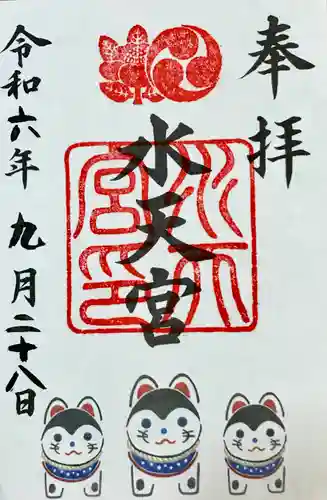 奉拝
水天宮
水天宮印
令和六年九月二十八日